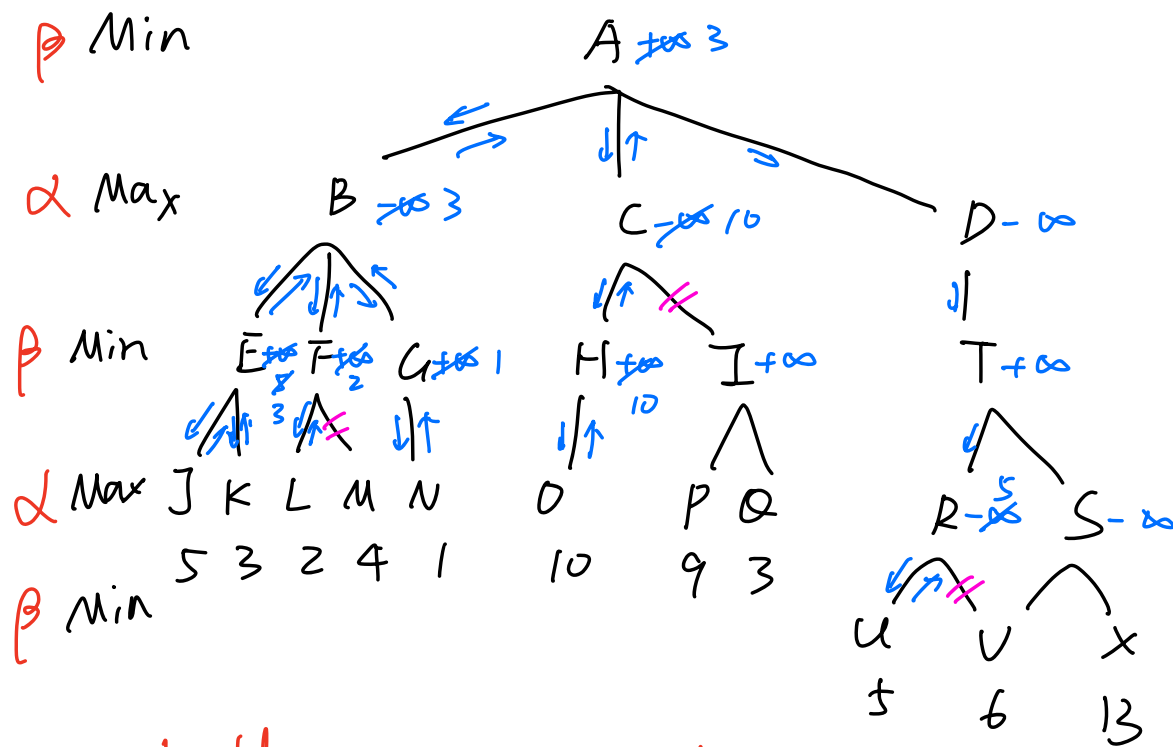 β Min A +∞ 3
α Max B -∞ 3 C -∞ 10 D -∞
β Min E +∞ 5 3 F +∞ 2 G +∞ 1 H +∞ 10 I +∞ T +∞
α Max J K L M N O P Q R -∞ 5 S -∞
5 3 2 4 1 10 9 3
β Min U V X
5 6 13